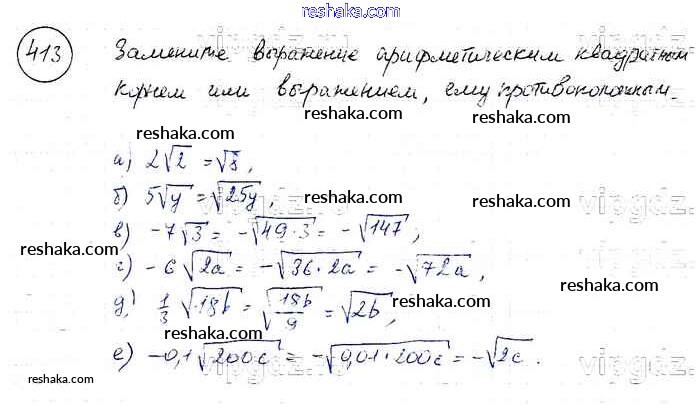 reshaka.com
413 Замените выражение арифметическим квадратным
корнем или выражением, ему противоположным.
reshaka.com
reshaka.com
а) 2√2 = √8,
б) 5√y = √25y,
reshaka.com
vipgdz.
в) -7√3 = -√49·3 = -√147;
reshaka.com
г) -6√2a = -√36·2a = -√72a,
д) 1/3 √18b = √18b/9 = √2b,
reshaka.com
reshaka.com
е) -0,1√200c = -√0,01·200c = -√2c.
reshaka.com
reshaka.com